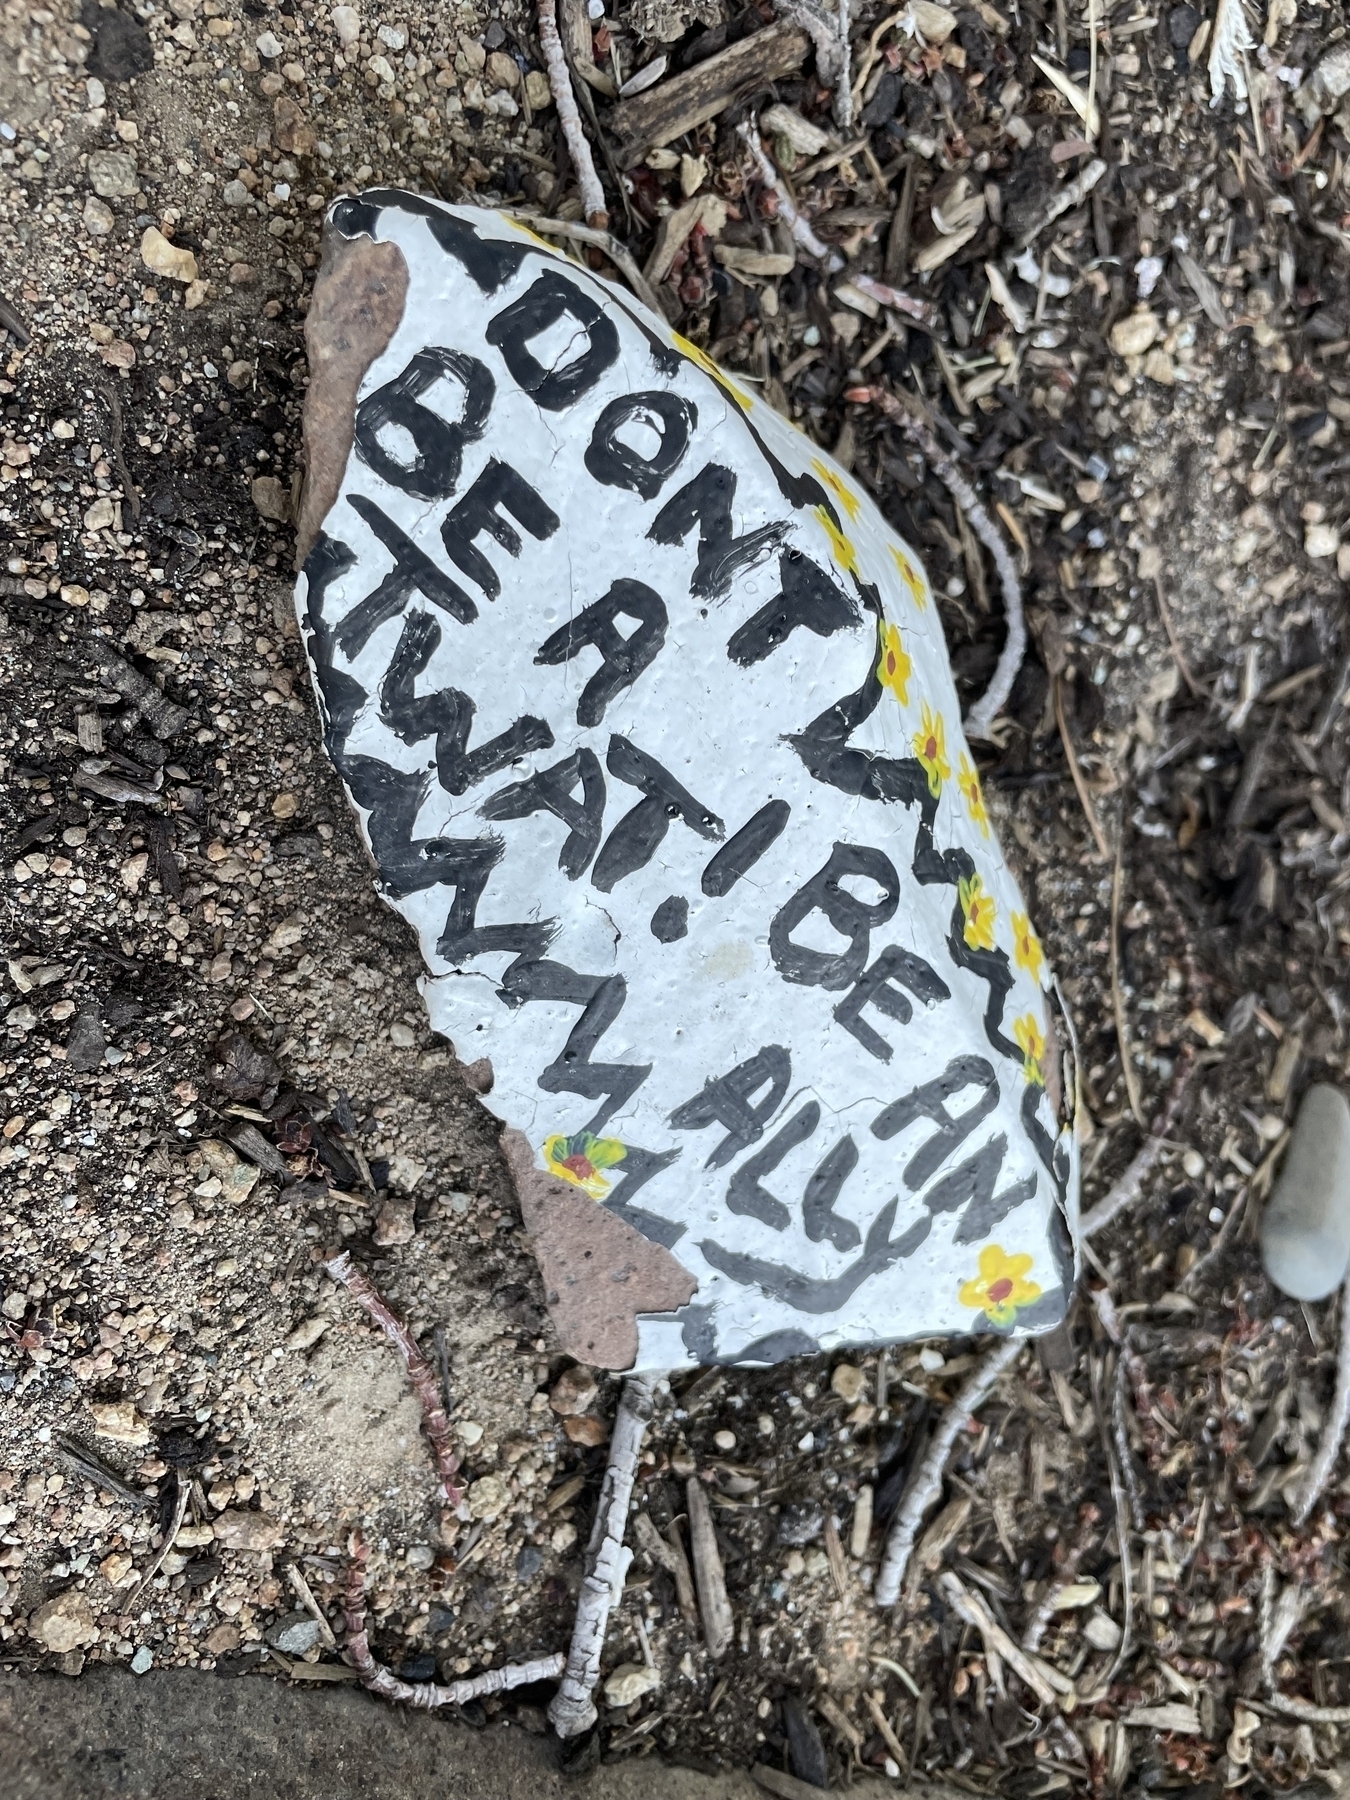 DONT
BE A
TWAT!
BE AN
ALLY